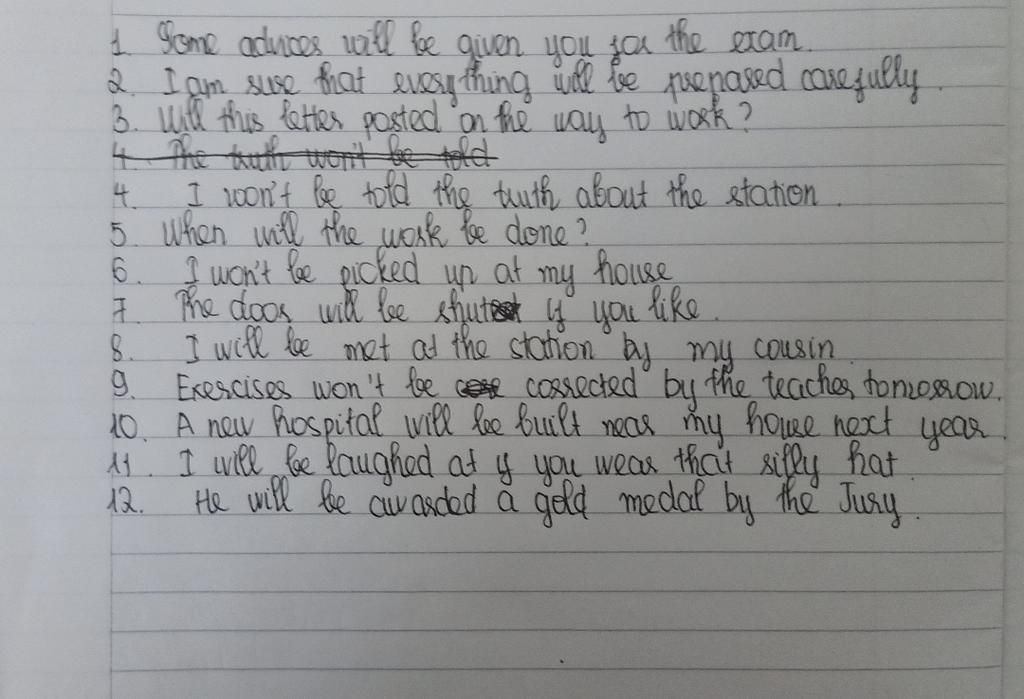 1. Some advices will be given you for the exam.
2. I am sure that everything will be prepared carefully.
3. Will this letter posted on the way to work?
4. The truth won't be told
4. I won't be told the truth about the station.
5. When will the work be done?
6. I won't be picked up at my house
7. The door will be shut if you like.
8. I will be met at the station by my cousin.
9. Exercises won't be corrected by the teacher tomorrow.
10. A new hospital will be built near my house next year.
11. I will be laughed at if you wear that silly hat.
12. He will be awarded a gold medal by the Jury.